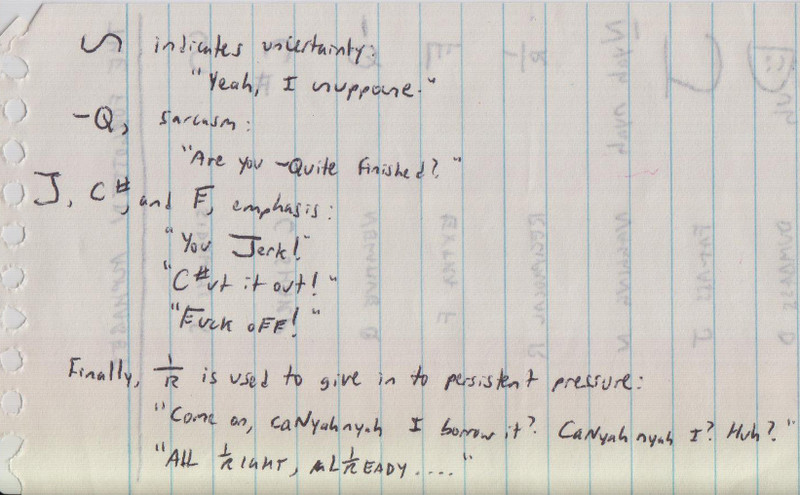 ᔕ indicates uncertainty:
"Yeah, I ᔕuppoᔕe."
-Q, sarcasm:
"Are you -Quite finished?"
J, C#, and F, emphasis:
"You Jerk!"
"C#ut it out!"
"Fuck oFF!"
Finally, 1/R is used to give in to persistent pressure:
"Come on, caNyahnyah I borrow it? CaNyahnyah I? Huh?"
"ALL 1/RIGHT, AL1/READY...."